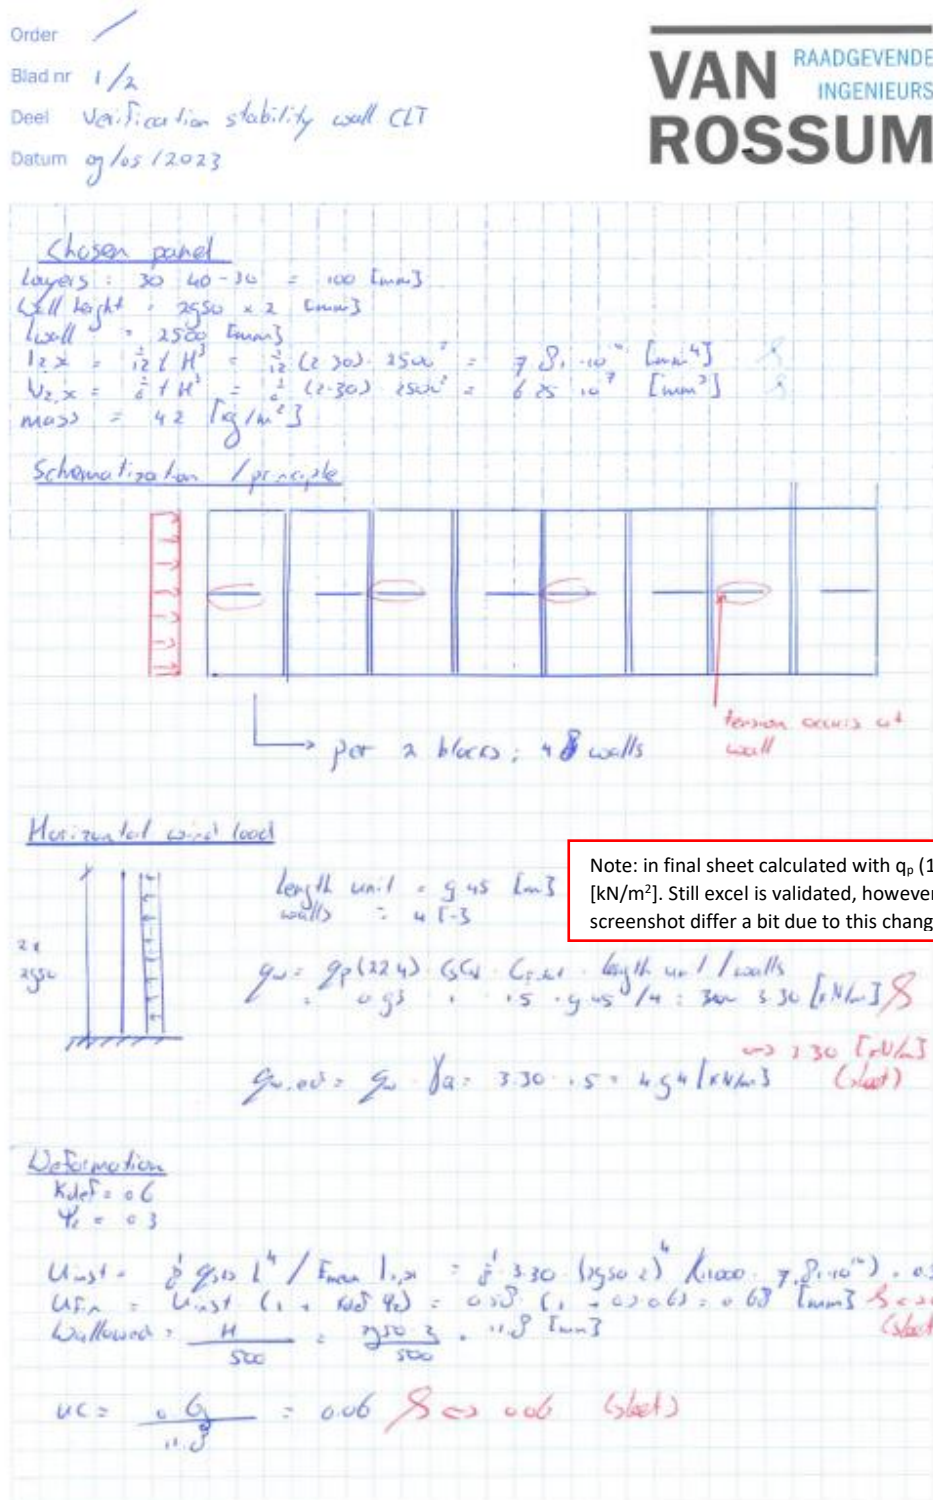 Order /
Blad nr 1/2
Deel Verification stability wall CLT
Datum 09/05/2023
VAN RAADGEVENDE
INGENIEURS
ROSSUM
Chosen panel
Layers : 30 40-30 = 100 [mm]
Wall height : 2950 x 2 [mm]
lwall = 2500 [mm]
Iz,x = 1/12 t H³ = 1/12 (2·30)· 2500³ = 7.81·10¹⁰ [mm⁴]
= 1/6 t H² = 1/6 (2·30) 2500² = 6.25 10⁷ [mm³]
mass = 42 [kg/m²]
Schematization / principle
tension occurs at
wall
per 2 blocks : 4 walls
Horizontal wind load
length unit = 9.45 [m]
walls = 4 [-]
Note: in final sheet calculated with qp (1
[kN/m²]. Still excel is validated, however
screenshot differ a bit due to this chang
2x
2950
qw = qp(22.4) · CsCd · · length unit / walls
= 0.93 · · 1.5 · 9.45 / 4 = 3.30 [kN/m]
<-> 3.30 [kN/m]
(sheet)
qw,ed = qw · γQ = 3.30 · 1.5 = 4.94 [kN/m]
Deformation
Kdef = 0.6
= 0.3
Uinst = 1/8 l⁴ / Emean = 1/8 · 3.30 · (2950·2)⁴ / (11000 · 7.81·10¹⁰) =
Ufin = Uinst · (1 + kdef ψ2) = (1 + 0.6) = [mm]
Wallowed = H / 500 = 2950·2 / 500 = 11.8 [mm]
(sheet
UC = / 11.8 = 0.06 <-> 0.06 (sheet)